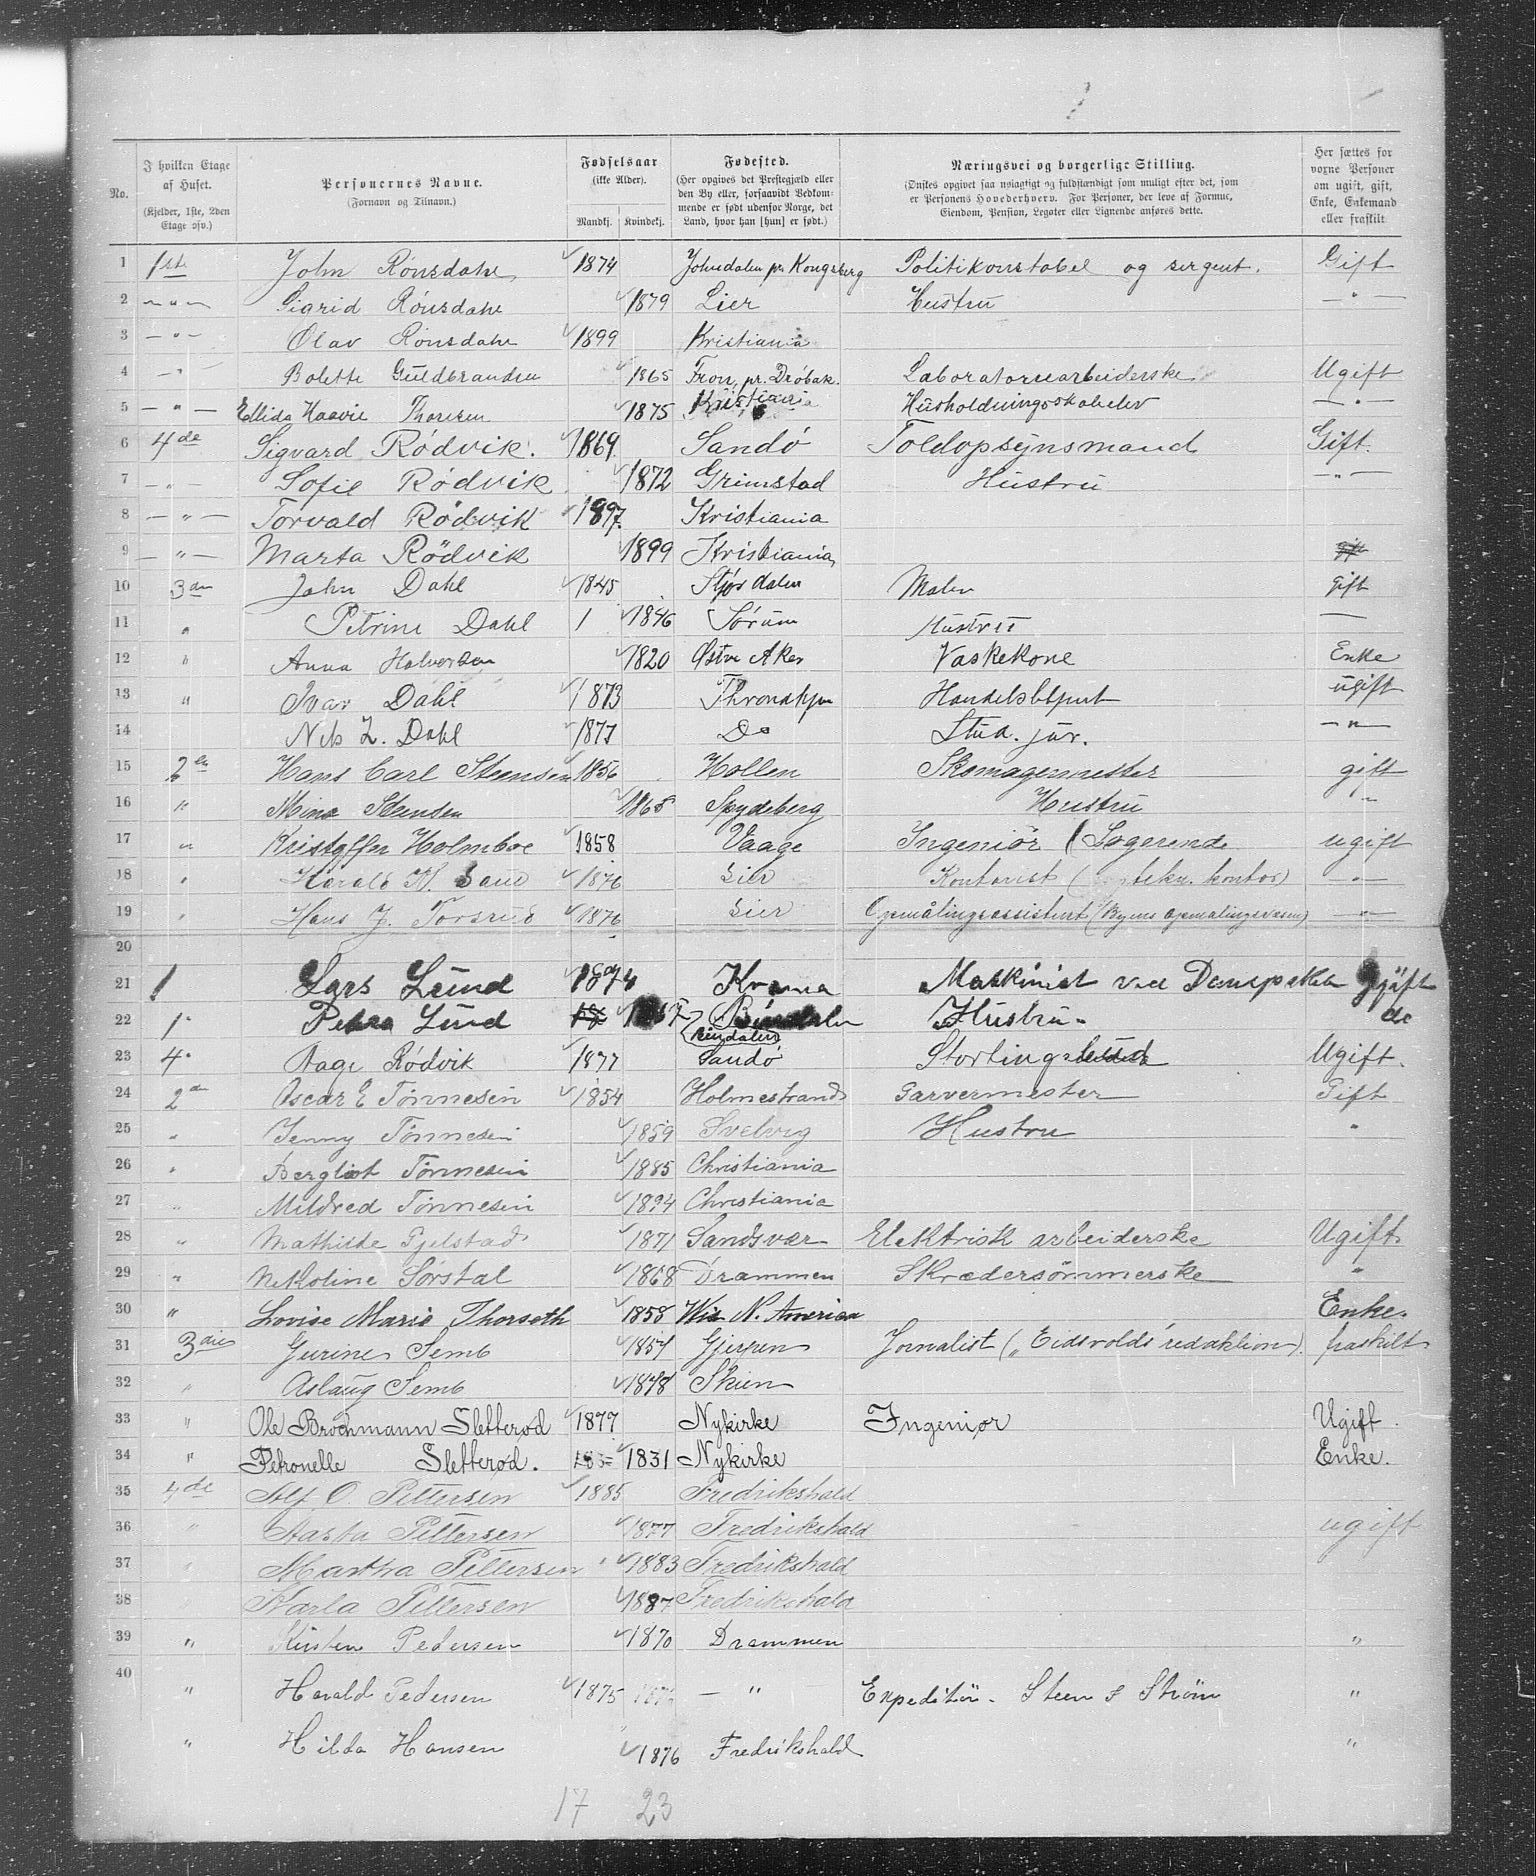 No.
I hvilken Etage af Huset. (Kjelder, 1ste, 2den Etage osv.)
Personernes Navne. (Fornavn og Tilnavn.)
Fødselsaar (ikke Alder). Mandkj. Kvindekj.
Fødested. (Her opgives det Prestegjæld eller den By eller, forsaavidt Vedkommende er født udenfor Norge, det Land, hvor han [hun] er født.)
Næringsvei og borgerlige Stilling. (Ønskes opgivet saa nøiagtigt og fuldstændigt som muligt efter det, som er Personens Hovederhverv. For Personer, der leve af Formue, Eiendom, Pension, Legater eller Lignende anføres dette.
Her sættes for voxne Personer om ugift, gift, Enke, Enkemand eller fraskilt
1 1ste John Rönsdahl 1874 Johnsdalen pr Kongsberg Politikonstabel og sergent. Gift
2 — " — Sigrid Rönsdahl 1879 Lier Hustru — " —
3 — " — Olav Rönsdahl 1899 Kristiania
4 — " Bolette Guldbrandsen 1865 Fron, pr. Dröbak. Laboratoriearbeiderske Ugift
5 — " — Ellida Haavie Thoresen 1875 Kristiania Husholdningsskolelev — " —
6 4de Sigvard Rödvik. 1869 Sandö Toldopsynsmand Gift.
7 — " — Sofie Rödvik 1872 Grimstad Hustru — " —
8 — " — Torvald Rödvik 1897. Kristiania
9 — " — Marta Rödvik 1899 Kristiania gift
10 3die John Dahl 1845 Stjørdalen Maler gift
11 " Petrine Dahl 1 1846 Sørum Hustru —
12 " Anna Halvorsen 1820 Østre Aker Vaskekone Enke
13 " Ivar Dahl 1873 Throndhjm Handelsbetjent ugift
14 Nils Z. Dahl 1877 Do Stud. jur. — " —
15 2den Hans Carl Steensen 1856 Hollen Skomagermester gift
16 " Mina Stensen 1868 Spydeberg Hustru "
17 " Kristoffer Holmboe 1858 Vaage Ingeniör (Logerende ugift
18 " Harald 1876 Lier Kontorist ( tekn. kontor) — " —
19 " Hans J. Torsrud 1876 Lier Opmålingsassistent (Byens opmålingsvæsen) — " —
20
21 1 Lars Lund 1874 Maskinist ved Gift
22 1" Petra Lund Rindalen Hustru do
23 4" Aage Rödvik 1877 Sandö Stortingsbud Ugift.
24 2den Oscar E Tönnesen 1854 Holmestrand Garvermester Gift
25 " Jenny Tönnesen 1859 Svelvig Hustru "
26 " Bergliot Tönnesen 1885 Christiania
27 " Mildred Tönnesen 1894 Christiania
28 " Mathilde Gjelstad 1871 Sandsvær Elektrisk arbeiderske Ugift
29 " Nikoline Sörstal 1868 Drammen Skrædersömmerske "
30 " Lovise Marie Thorseth 1858 Wis N. America Enke.
31 3die Gurine Semb 1857 Gjerpen Jornalist („Eidsvolds" redaktion). fraskilt
32 " Aslaug Semb 1878 Skien
33 " Ole Brochmann Sletterød 1877 Nykirke Ingeniør Ugift.
34 " Petronelle Sletterød. 1831 Nykirke Enke.
35 4de Alf O. Pettersen 1885 Fredrikshald
36 " Aasta Pettersen 1877 Fredrikshald ugift
37 " Martha Pettersen " 1883 Fredrikshald
38 " Karla Pettersen 1887 Fredrikshald
39 " Kirsten Pedersen 1870 Drammen "
40 " Harald Pedersen 1875 1876 — " Expeditör. Steen & Ström "
" Hilda Hansen 1876 Fredrikshald "
17 23